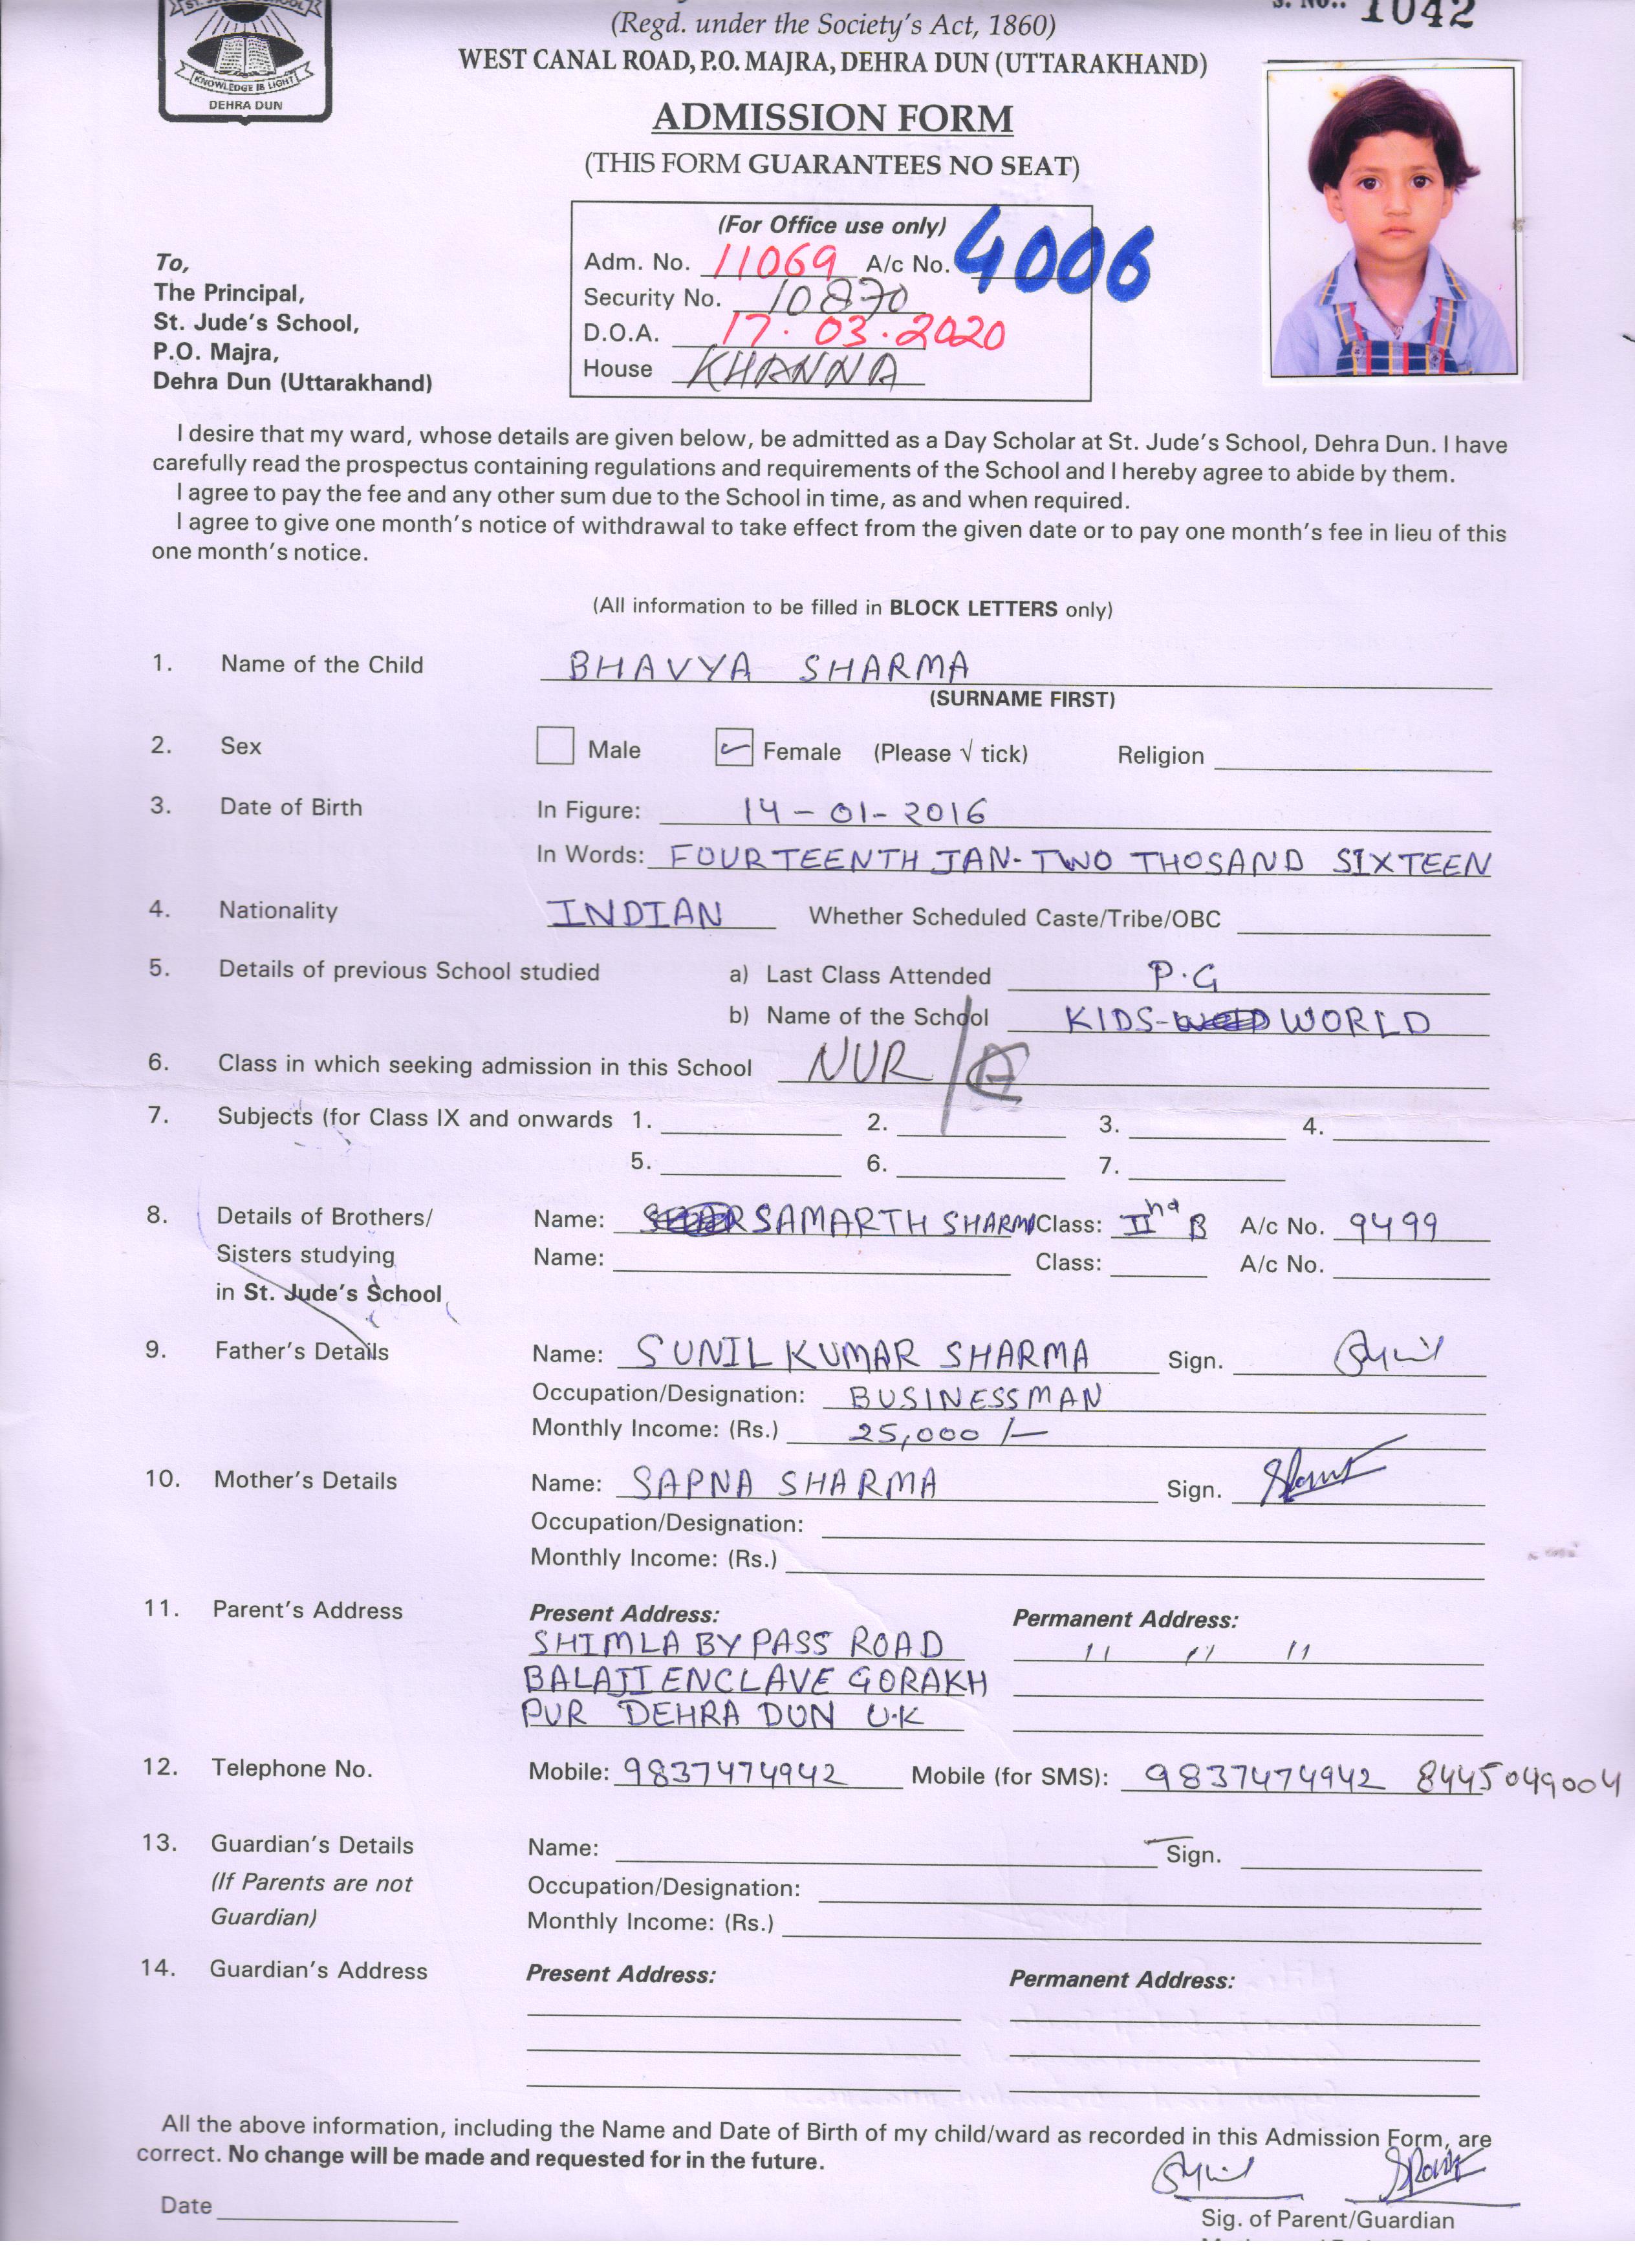 ST. JUDE'S SCHOOL
KNOWLEDGE IS LIGHT
DEHRA DUN
S. No.. 1042
(Regd. under the Society's Act, 1860)
WEST CANAL ROAD, P.O. MAJRA, DEHRA DUN (UTTARAKHAND)
ADMISSION FORM
(THIS FORM GUARANTEES NO SEAT)
(For Office use only)
Adm. No. 11069 A/c No. 4006
Security No. 10870
D.O.A. 17.03.2020
House KHANNA
To,
The Principal,
St. Jude's School,
P.O. Majra,
Dehra Dun (Uttarakhand)
I desire that my ward, whose details are given below, be admitted as a Day Scholar at St. Jude's School, Dehra Dun. I have
carefully read the prospectus containing regulations and requirements of the School and I hereby agree to abide by them.
I agree to pay the fee and any other sum due to the School in time, as and when required.
I agree to give one month's notice of withdrawal to take effect from the given date or to pay one month's fee in lieu of this
one month's notice.
(All information to be filled in BLOCK LETTERS only)
1. Name of the Child BHAVYA SHARMA
(SURNAME FIRST)
2. Sex Male Female (Please √ tick) Religion
3. Date of Birth In Figure: 14-01-2016
In Words: FOURTEENTH JAN-TWO THOSAND SIXTEEN
4. Nationality INDIAN Whether Scheduled Caste/Tribe/OBC
5. Details of previous School studied a) Last Class Attended P.G
b) Name of the School KIDS- WORLD
6. Class in which seeking admission in this School NUR/A
7. Subjects (for Class IX and onwards 1. 2. 3. 4.
5. 6. 7.
8. Details of Brothers/ Name: SAMARTH SHARMA Class: IInd B A/c No. 9499
Sisters studying Name: Class: A/c No.
in St. Jude's School
9. Father's Details Name: SUNIL KUMAR SHARMA Sign.
Occupation/Designation: BUSINESSMAN
Monthly Income: (Rs.) 25,000/-
10. Mother's Details Name: SAPNA SHARMA Sign.
Occupation/Designation:
Monthly Income: (Rs.)
11. Parent's Address Present Address: Permanent Address:
SHIMLA BY PASS ROAD 11 11 11
BALAJI ENCLAVE GORAKH
PUR DEHRA DUN U.K
12. Telephone No. Mobile: 9837474942 Mobile (for SMS): 9837474942 8445049004
13. Guardian's Details Name: Sign.
(If Parents are not Occupation/Designation:
Guardian) Monthly Income: (Rs.)
14. Guardian's Address Present Address: Permanent Address:
All the above information, including the Name and Date of Birth of my child/ward as recorded in this Admission Form, are
correct. No change will be made and requested for in the future.
Date
Sig. of Parent/Guardian